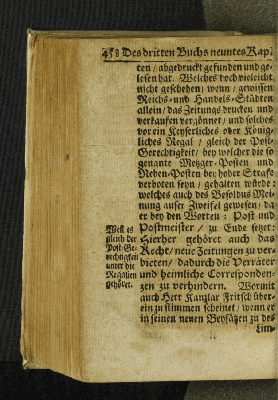 458 Des dritten Buchs neuntes Kap.
ten / abgedruckt gefunden und ge-
lesen hat. Welches doch vieleicht
nicht geschehen / wenn / gewissen
Reichs- und Handels-Städten
allein / das Zeitungs drucken und
verkaufen vergönnet / und solches
vor ein Keyserliches oder König-
liches Regal / gleich der Post-
Gerechtigkeit / bey welcher die so
genante Metzger-Posten und
Neben-Posten bey hoher Strafe
verboten seyn / gehalten würde:
welches auch des Besoldus Mei-
nung auser Zweifel gewesen / da
er bey den Worten: Post und
Postmeister / zu Ende setzet:
Hierher gehöret auch das
Recht / neue Zeitungen zu ver-
bieten / dadurch die Verräter
und heimliche Corresponden-
zen zu verhindern. Wormit
auch Herr Kanzlar Fritsch über-
ein zu stimmen scheinet / wenn er
in seinen neuen Beysätzen zu des
Lim-
Weil es
gleich der
Post-Ge-
rechtigkeit
unter die
Regalien
gehöret.